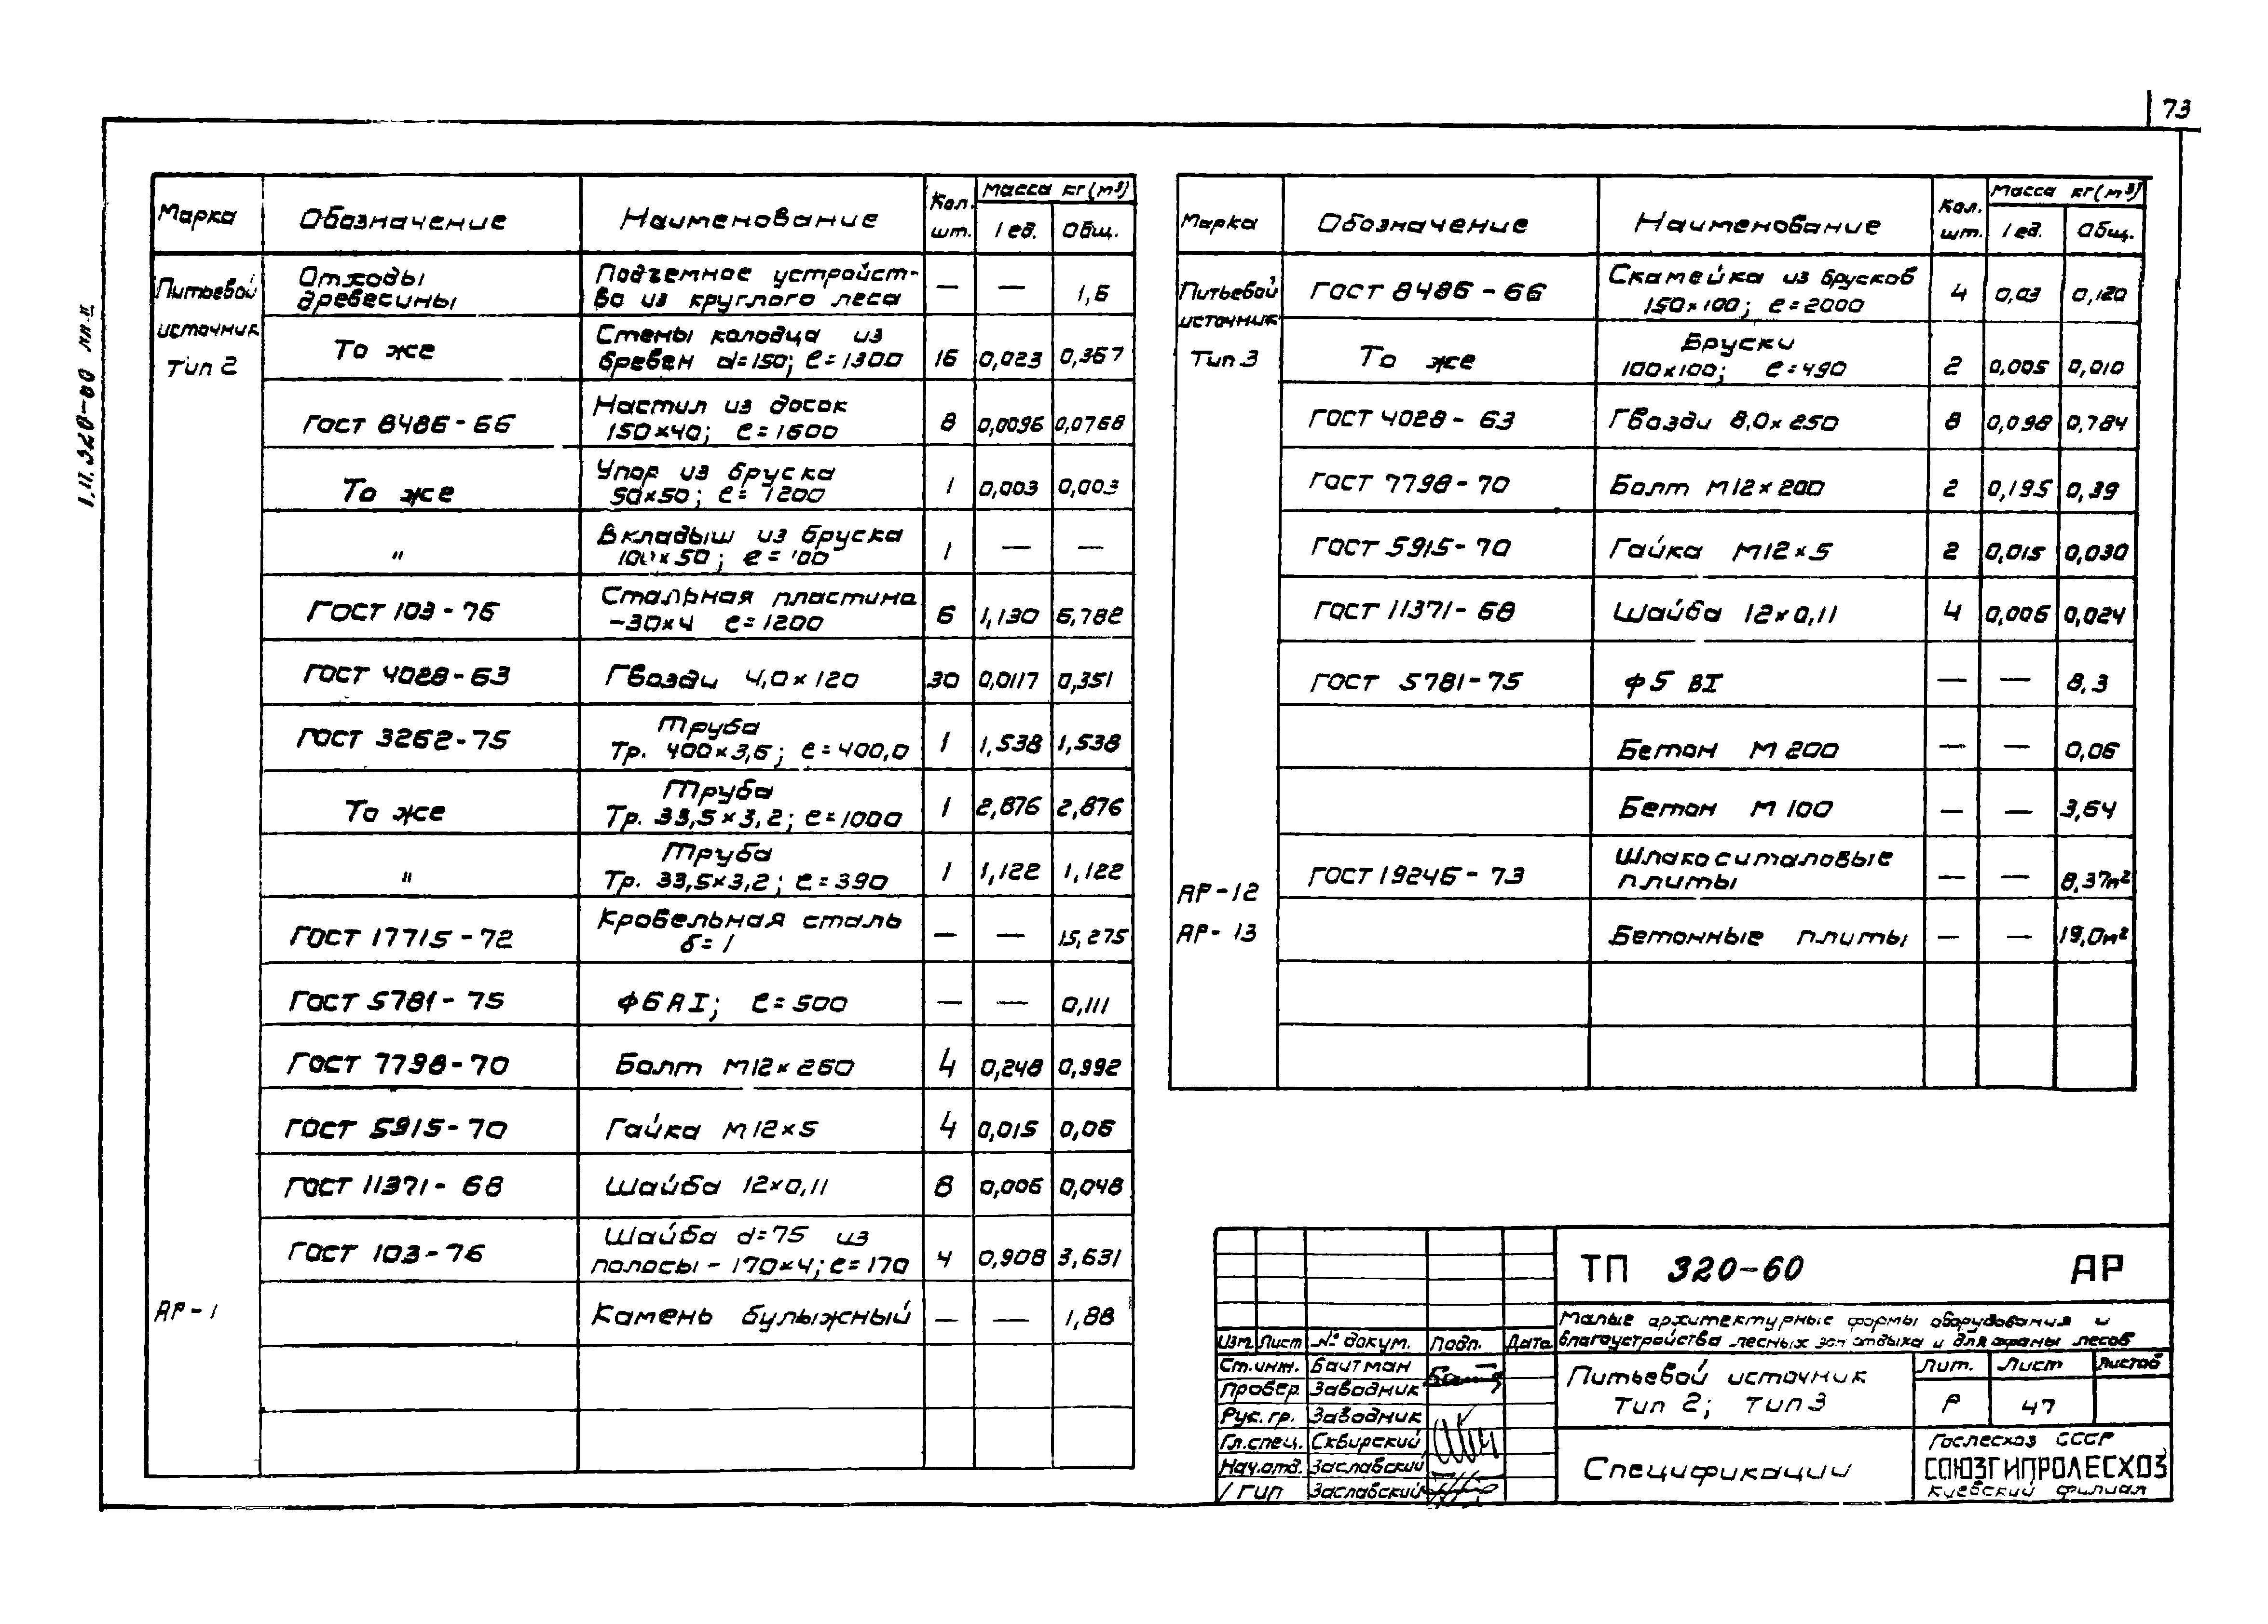 73
Т.П. 320-60 ал.II
Марка Обозначение Наименование Кол. шт. Масса кг (м³) 1 ед. Общ.
Питьевой источник Тип 2
Отходы древесины Подземное устройст-
во из круглого леса — — 1,6
То же Стены колодца из
бревен d=150; ℓ=1300 16 0,023 0,367
ГОСТ 8486-66 Настил из досок
150×40; ℓ=1600 8 0,0096 0,0768
То же Упор из бруска
50×50; ℓ=1200 1 0,003 0,003
" Вкладыш из бруска
100×50; ℓ=100 1 — —
ГОСТ 103-76 Стальная пластина
-30×4 ℓ=1200 6 1,130 6,782
ГОСТ 4028-63 Гвозди 4,0×120 30 0,0117 0,351
ГОСТ 3262-75 Труба
Тр. 400×3,6; ℓ=400,0 1 1,538 1,538
То же Труба
Тр. 33,5×3,2; ℓ=1000 1 2,876 2,876
" Труба
Тр. 33,5×3,2; ℓ=390 1 1,122 1,122
ГОСТ 17715-72 Кровельная сталь
δ=1 — — 15,275
ГОСТ 5781-75 ф6АI; ℓ=500 — — 0,111
ГОСТ 7798-70 Болт М12×260 4 0,248 0,992
ГОСТ 5915-70 Гайка М12×5 4 0,015 0,06
ГОСТ 11371-68 Шайба 12×0,11 8 0,006 0,048
ГОСТ 103-76 Шайба d=75 из
полосы - 170×4; ℓ=170 4 0,908 3,631
АР-1 Камень булыжный — — 1,88
Марка Обозначение Наименование Кол. шт. Масса кг (м³) 1 ед. Общ.
Питьевой источник Тип 3
ГОСТ 8486-66 Скамейка из брусков
150×100; ℓ=2000 4 0,03 0,120
То же Бруски
100×100; ℓ=490 2 0,005 0,010
ГОСТ 4028-63 Гвозди 8,0×250 8 0,098 0,784
ГОСТ 7798-70 Болт М12×200 2 0,195 0,39
ГОСТ 5915-70 Гайка М12×5 2 0,015 0,030
ГОСТ 11371-68 Шайба 12×0,11 4 0,006 0,024
ГОСТ 5781-75 ф5 ВI — — 8,3
Бетон М200 — — 0,06
Бетон М100 — — 3,64
АР-12 ГОСТ 19246-73 Шлакоситаловые
плиты — — 8,37м²
АР-13 Бетонные плиты — — 19,0м²
ТП 320-60 АР
Малые архитектурные формы оборудования и
благоустройства лесных зон отдыха и для охраны лесов
Изм. Лист № докум. Подп. Дата
Ст.инж. Байтман
Провер. Заводник
Рук. гр. Заводник
Гл.спец. Сквирский
Нач.отд. Заславский
ГИП Заславский
Питьевой источник
Тип 2; тип 3
Лит. Лист Листов
Р 47
Спецификации
Гослесхоз СССР
СОЮЗГИПРОЛЕСХОЗ
Киевский филиал